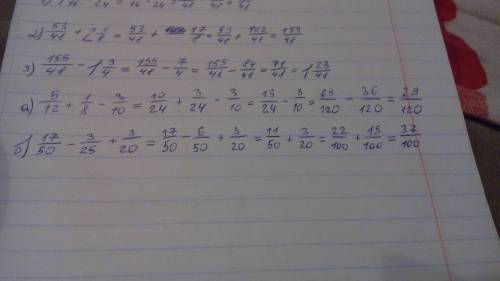 2) 53/48 + 2 1/8 = 53/48 + 17/8 = 53/48 + 102/48 = 155/48
3) 155/48 - 1 3/4 = 155/48 - 7/4 = 155/48 - 84/48 = 71/48 = 1 23/48
а) 5/12 + 1/8 - 3/10 = 10/24 + 3/24 - 3/10 = 13/24 - 3/10 = 65/120 - 36/120 = 29/120
б) 17/50 - 3/25 + 3/20 = 17/50 - 6/50 + 3/20 = 11/50 + 3/20 = 22/100 + 15/100 = 37/100